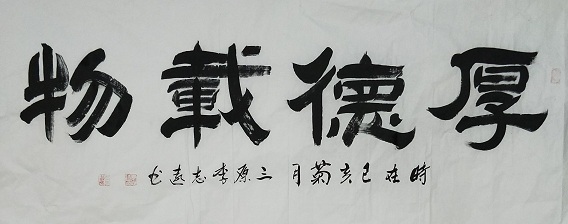 厚德載物
時在己亥菊月三原李志遠书